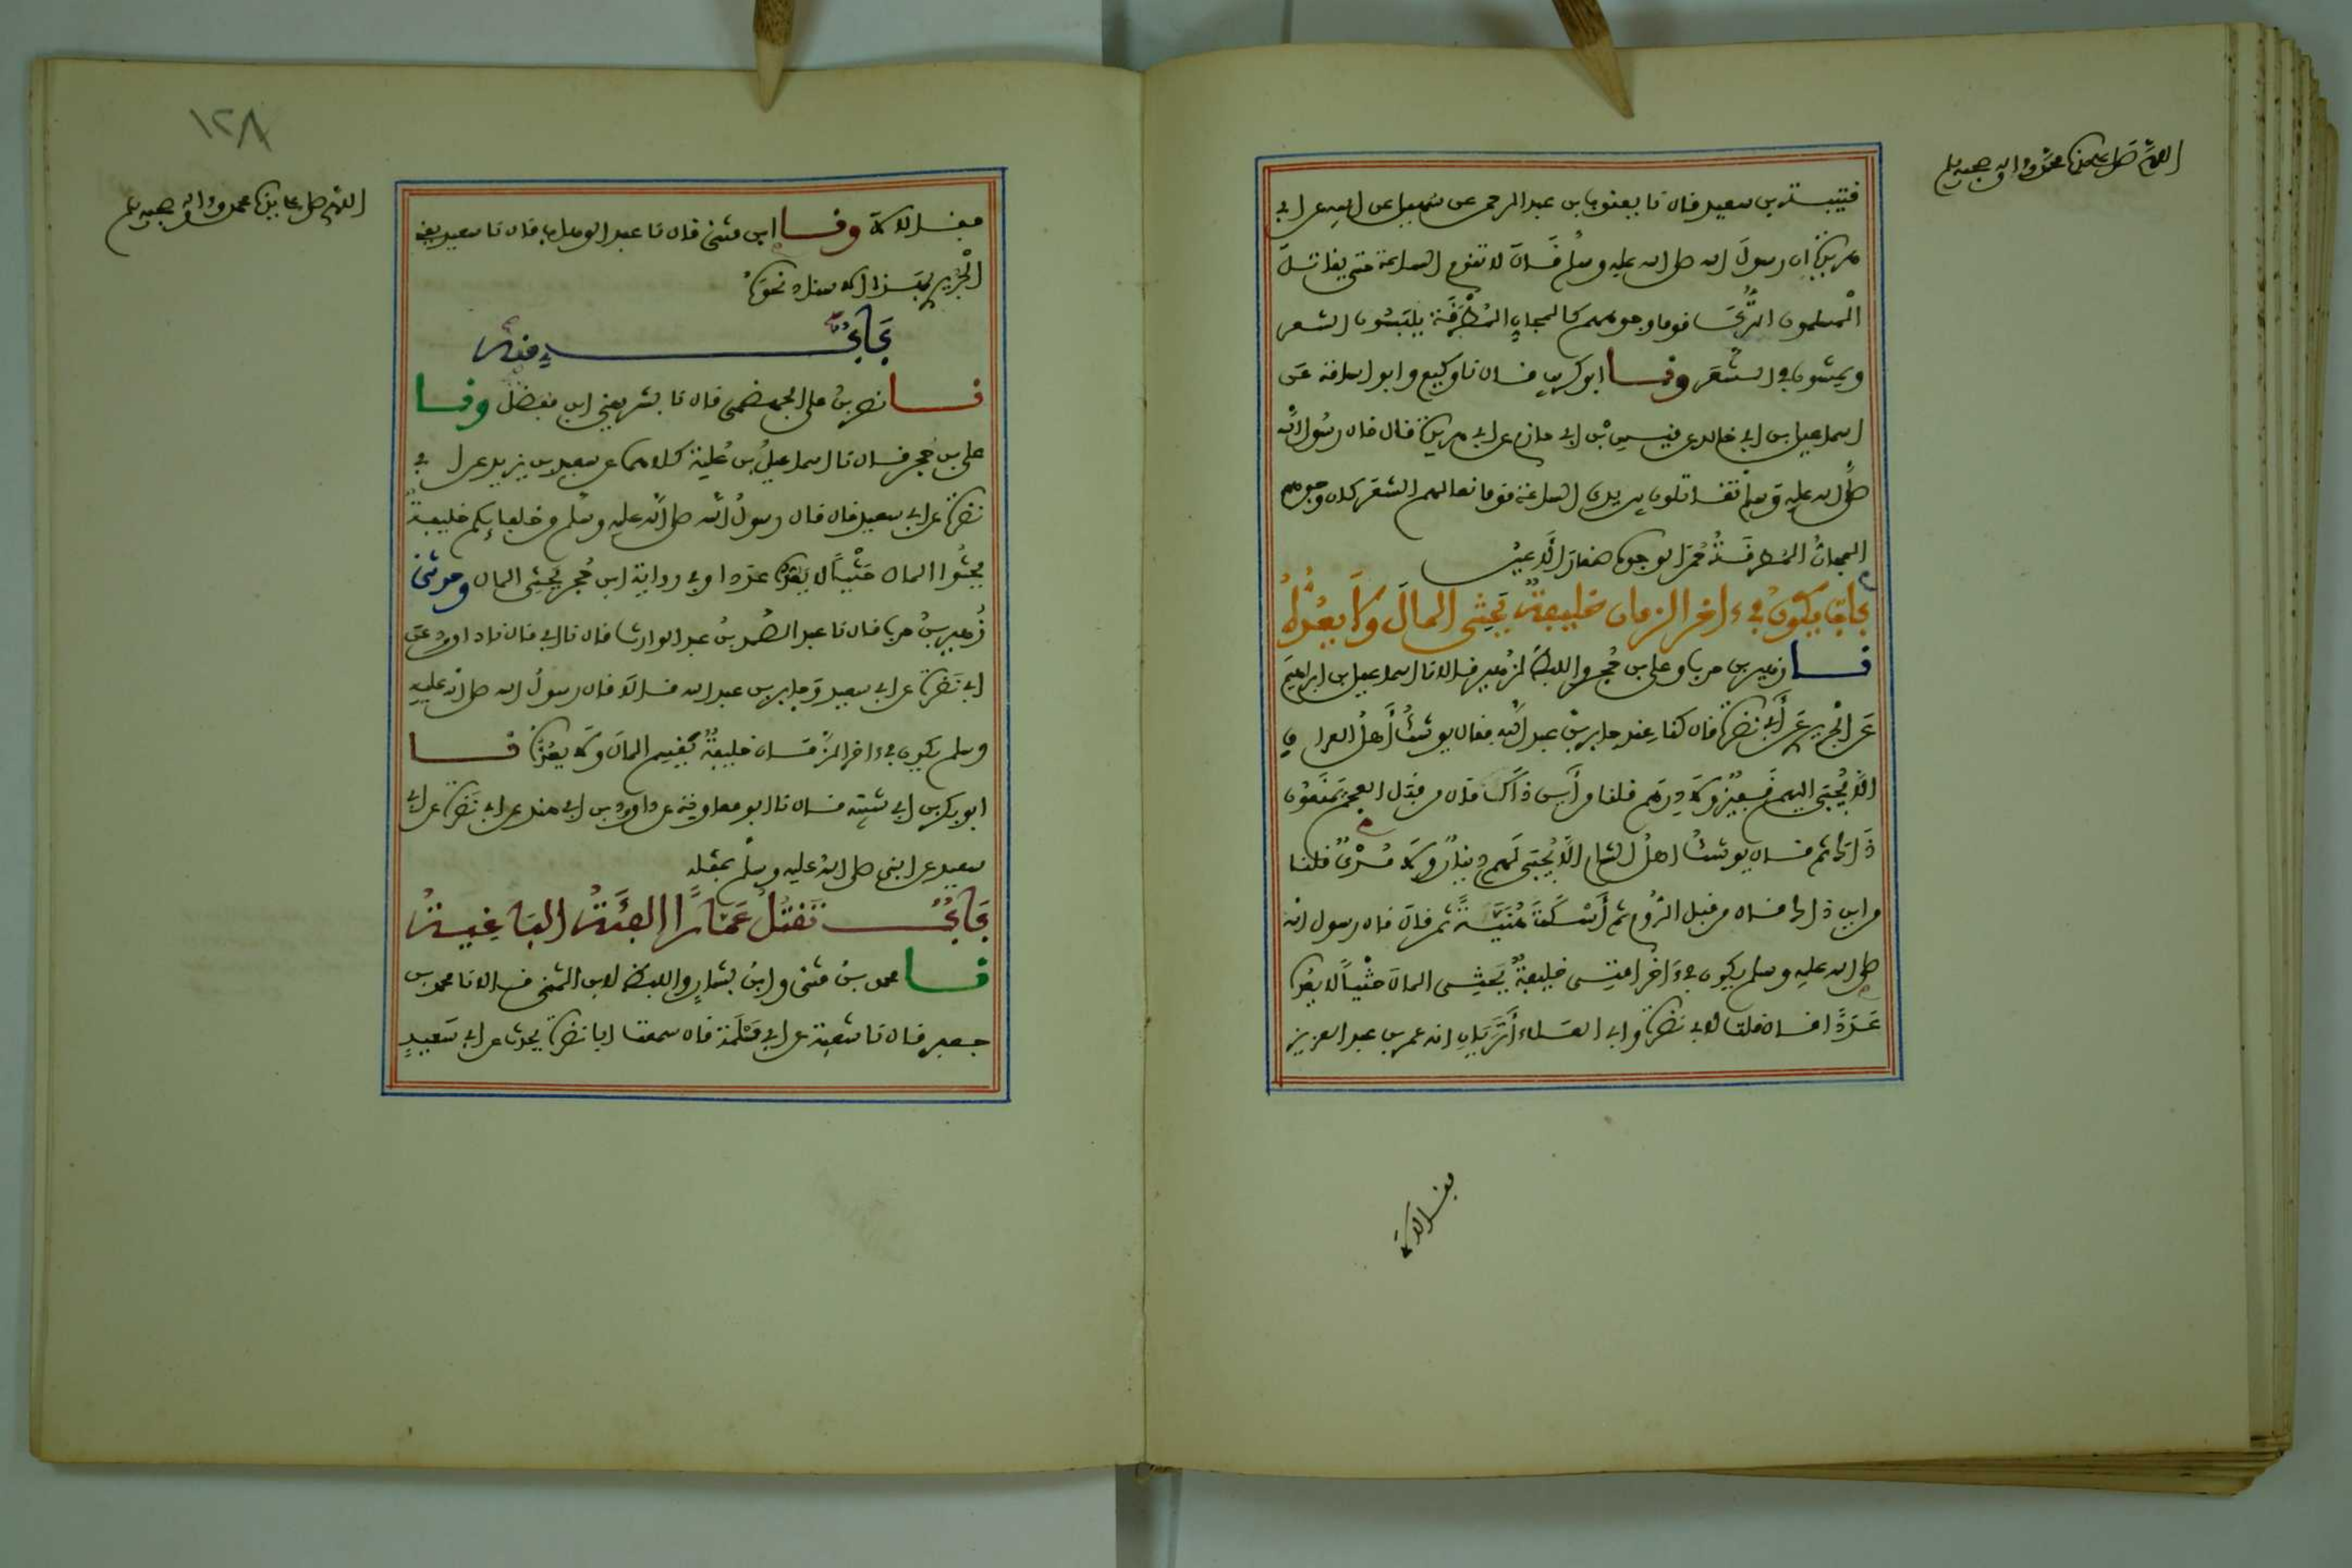 اللهم صل على سيدنا محمد واله وصحبه وسلم
قتيبة بن سعيد قال نا يعقوب بن عبد الرحمن عن سهيل عن ابيه عن ابي
هريرة ان رسول الله صلى الله عليه وسلم قال لا تقوم الساعة حتى يقاتل
المسلمون الترك قوما وجوههم كالمجان المطرقة يلبسون الشعر
ويمشون في الشعر ونا ابو كريب قال نا وكيع وابو اسامة عن
اسماعيل بن ابي خالد عن قيس بن ابي حازم عن ابي هريرة قال قال رسول الله
صلى الله عليه وسلم تقاتلون بين يدي الساعة قوما نعالهم الشعر كان وجوههم
المجان المطرقة حمر الوجوه صغار الاعين
باب يكون في ءاخر الزمان خليفة يحثى المال ولا يعده
نا زهير بن حرب وعلي بن حجر واللفظ لزهير قالا نا اسماعيل بن ابراهيم
عن الجريري عن ابي نضرة قال كنا عند جابر بن عبد الله فقال يوشك اهل العراق
الا يجبى اليهم قفيز ولا درهم قلنا من اين ذاك قال من قبل العجم يمنعون
ذاك ثم قال يوشك اهل الشام الا يجبى لهم دينار ولا مدي قلنا
من اين ذاك قال من قبل الروم ثم اسكت هنية ثم قال قال رسول الله
صلى الله عليه وسلم يكون في ءاخر امتي خليفة يحثي المال حثيا لا يعده
عددا قال قلت لابي نضرة وابي العلاء اتريان انه عمر بن عبد العزيز
فقالا لا
١٢٨
اللهم صل على سيدنا محمد واله وصحبه وسلم
فقالا لا ونا ابن مثنى قال نا عبد الوهاب قال نا سعيد يعني
الجريري بهذا الاسناد نحوه
باب منه
نا نصر بن علي الجهضمي قال نا بشر يعني ابن مفضل ونا
علي بن حجر قال نا اسماعيل بن علية كلاهما عن سعيد بن يزيد عن ابي
نضرة عن ابي سعيد قال قال رسول الله صلى الله عليه وسلم من خلفايكم خليفة
يحثوا المال حثيا لا يعده عددا وفي رواية ابن حجر يحثي المال وحدثني
زهير بن حرب قال نا عبد الصمد بن عبد الوارث قال نا ابي قال نا داوود عن
ابي نضرة عن ابي سعيد وجابر بن عبد الله قالا قال رسول الله صلى الله عليه
وسلم يكون في ءاخر الزمان خليفة يقسم المال ولا يعده نا
ابو بكر بن ابي شيبة قال نا ابو معاوية عن داوود بن ابي هند عن ابي نضرة عن ابي
سعيد عن النبي صلى الله عليه وسلم بمثله
باب تقتل عمارا الفئة الباغية
نا محمد بن مثنى وابن بشار واللفظ لابن المثنى قالا نا محمد بن
جعفر قال نا شعبة عن ابي مسلمة قال سمعت ابا نضرة يحدث عن ابي سعيد